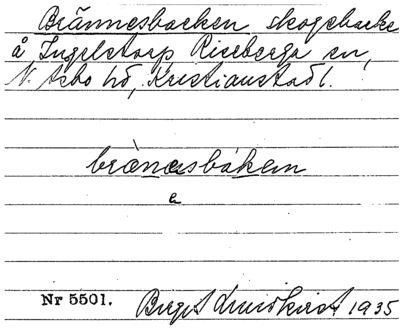 Brännesbacken skogsbacke
å Ingelstorp Riseberga sn,
N. Asbo hd, Kristianstad l.
brænesbakem
e
Nr 5501.
Birgit Lundkvist 1935